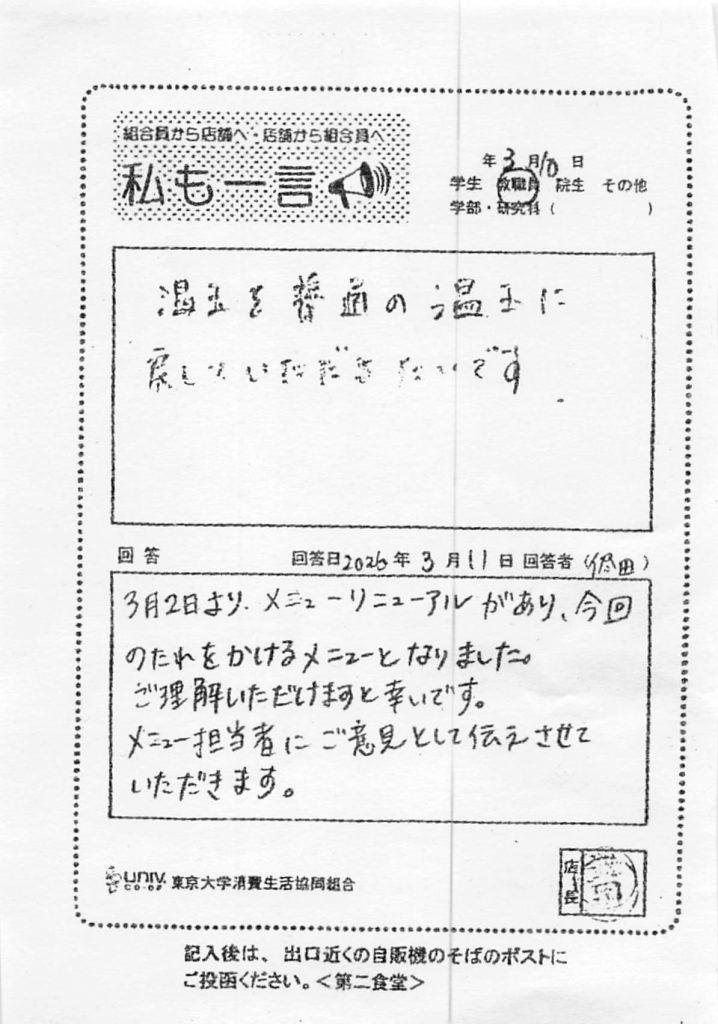 組合員から店舗へ・店舗から組合員へ
私も一言
年3月10日
学生 教職員 院生 その他
学部・研究科（ ）
温玉を普通の温玉に
戻していただきたいです。
回答 回答日2026年3月11日 回答者（ 田）
3月2日より、メニューリニューアルがあり、今回
のたれをかけるメニューとなりました。
ご理解いただけますと幸いです。
メニュー担当者にご意見として伝えさせて
いただきます。
UNIV. CO-OP 東京大学消費生活協同組合
店長
記入後は、出口近くの自販機のそばのポストに
ご投函ください。＜第二食堂＞